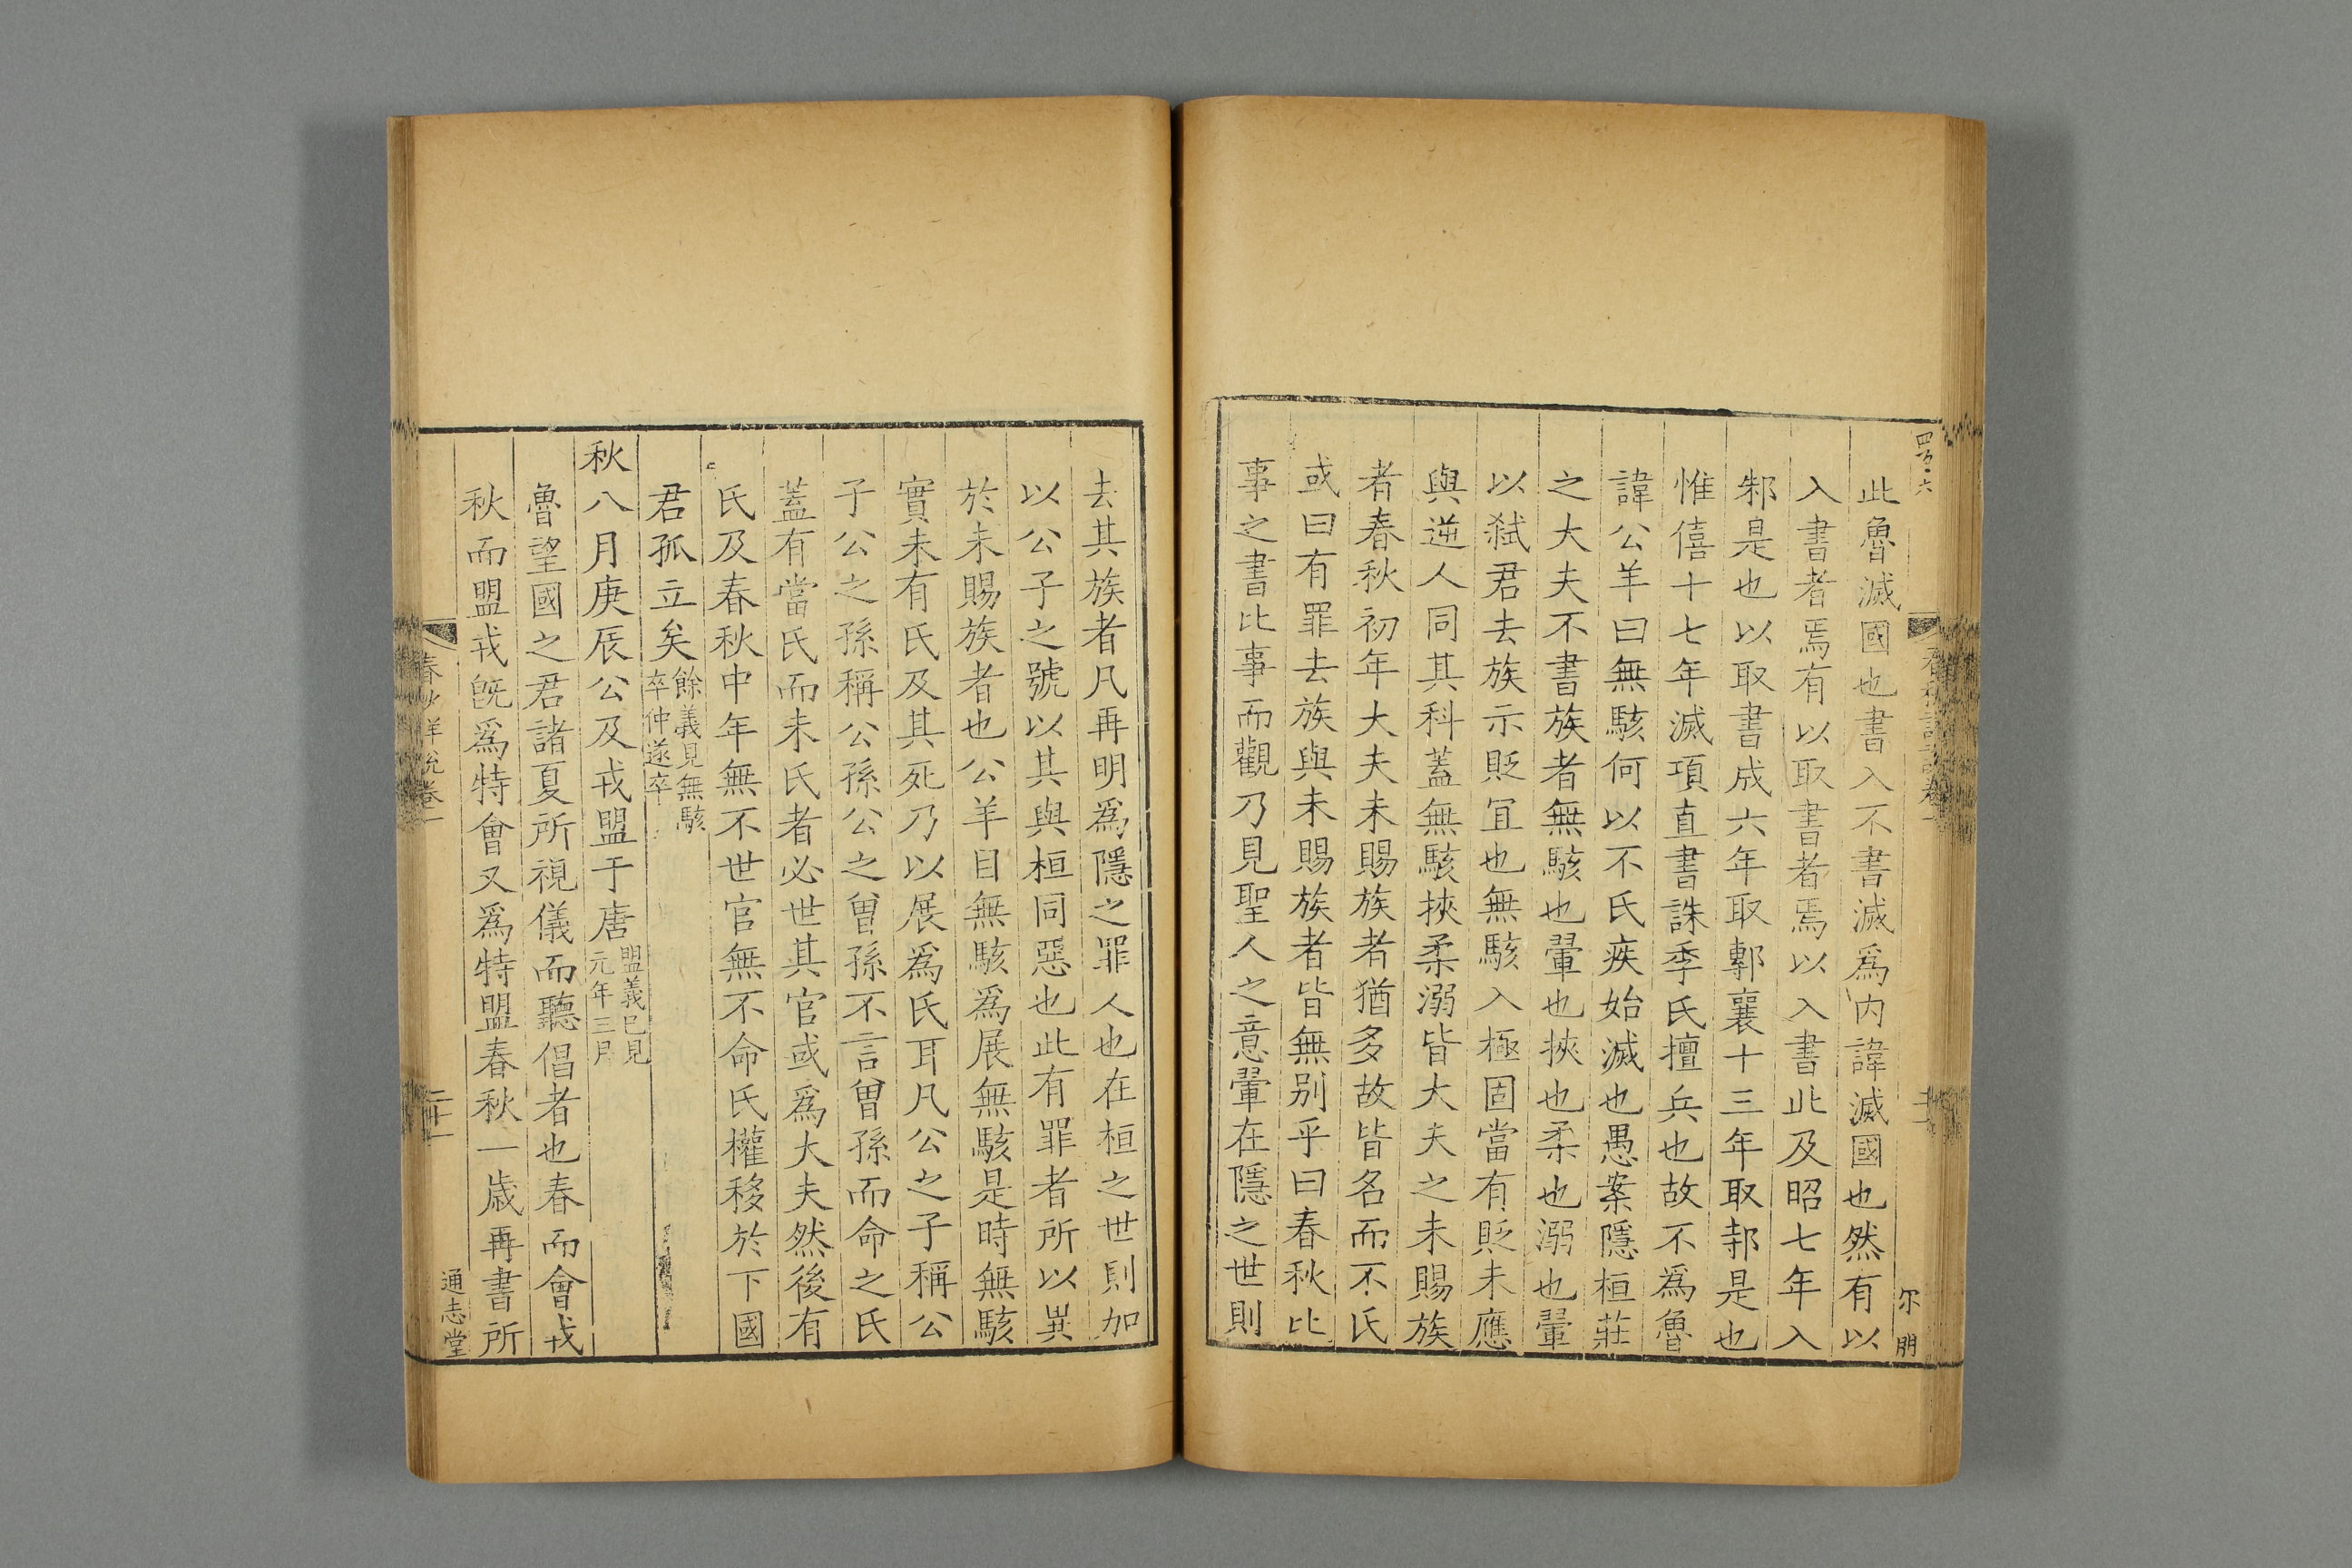 此魯滅國也書入不書滅爲内諱滅國也然有以
入書者焉有以取書者焉以入書此及昭七年入
邾是也以取書成六年取鄟襄十三年取邿是也
惟僖十七年滅項直書誅季氏擅兵也故不爲魯
諱公羊曰無駭何以不氏疾始滅也愚案隱桓莊
之大夫不書族者無駭也翬也挾也柔也溺也翬
以弑君去族示貶宜也無駭入極固當有貶未應
與逆人同其科蓋無駭挾柔溺皆大夫之未賜族
者春秋初年大夫未賜族者猶多故皆名而不氏
或曰有罪去族與未賜族者皆無别乎曰春秋比
事之書比事而觀乃見聖人之意翬在隱之世則
尔明
去其族者凡再明爲隱之罪人也在桓之世則加
以公子之號以其與桓同惡也此有罪者所以異
於未賜族者也公羊目無駭爲展無駭是時無駭
實未有氏及其死乃以展爲氏耳凡公之子稱公
子公之孫稱公孫公之曾孫不言曾孫而命之氏
蓋有當氏而未氏者必世其官或爲大夫然後有
氏及春秋中年無不世官無不命氏權移於下國
君孤立矣餘義見無駭
卒仲遂卒
秋八月庚辰公及戎盟于唐盟義已見
元年三月
魯望國之君諸夏所視儀而聽倡者也春而會戎
秋而盟戎旣爲特會又爲特盟春秋一歲再書所
春秋詳説卷一
二十一
通志堂